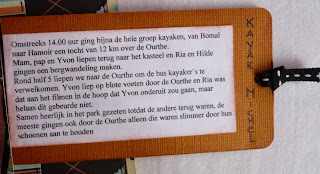 Omstreeks 14.00 uur ging bijna de hele groep kayaken, van Bomal
naar Hamoir een tocht van 12 km over de Ourthe.
Mam, pap en Yvon liepen terug naar het kasteel en Ria en Hilde
gingen een bergwandeling maken.
Rond half 5 liepen we naar de Ourthe om de bus kayaker`s te
verwelkomen. Yvon liep op blote voeten door de Ourthe en Ria was
dat aan het filmen in de hoop dat Yvon onderuit zou gaan, maar
helaas dit gebeurde niet.
Samen heerlijk in het park gezeten totdat de andere terug waren, de
meeste gingen ook door de Ourthe alleen die waren slimmer door hun
schoenen aan te houden
KAYAK MICHEL